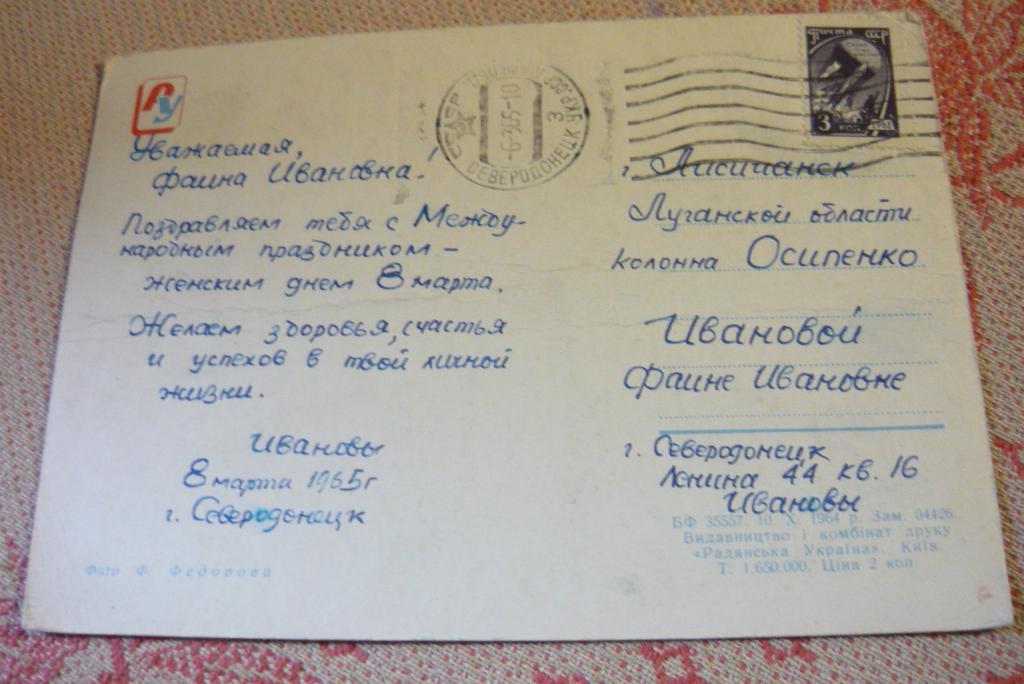 РУ
Уважаемая,
Фаина Ивановна!
Поздравляем тебя с Между-
народным праздником –
женским днем 8 марта.
Желаем здоровья, счастья
и успехов в твой личной
жизни.
Ивановы
8 марта 1965 г
г. Северодонецк
Фото Ф. Федорова
СССР
СЕВЕРОДОНЕЦК 3
-6 365-10
почта СССР
3 коп
1961
г. Лисичанск
Луганской области
колонна Осипенко
Ивановой
Фаине Ивановне
г. Северодонецк
Ленина 44 кв. 16
Ивановы
БФ 35557. 10. X. 1964 р. Зам. 04426.
Видавництво і комбінат друку
«Радянська Україна». Київ.
Т. 1.650.000. Ціна 2 коп.